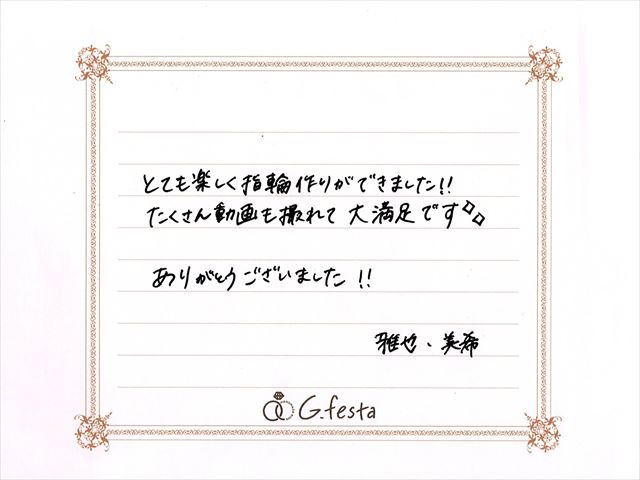 とても楽しく指輪作りができました!!
たくさん動画も撮れて大満足です
ありがとうございました!!
雅也、美希
G.festa